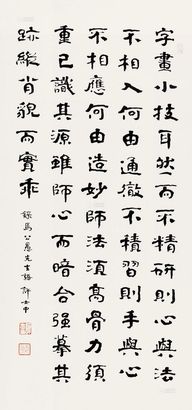 字畫小技耳然而不精研則心與法
不相入何由通徹不積習則手與心
不相應何由造妙師法須高骨力須
重已識其源雖師心而暗合強摹其
跡縱肖貌而實乖
錄馬公愚先生語 許士中